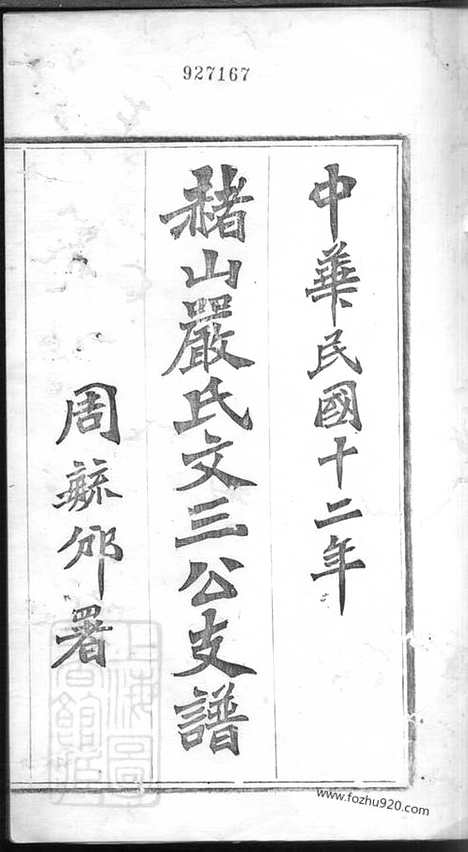 927167
中華民國十二年
赭山嚴氏文三公支譜
周毓邠署
上海圖書館藏
www.fozhu920.com